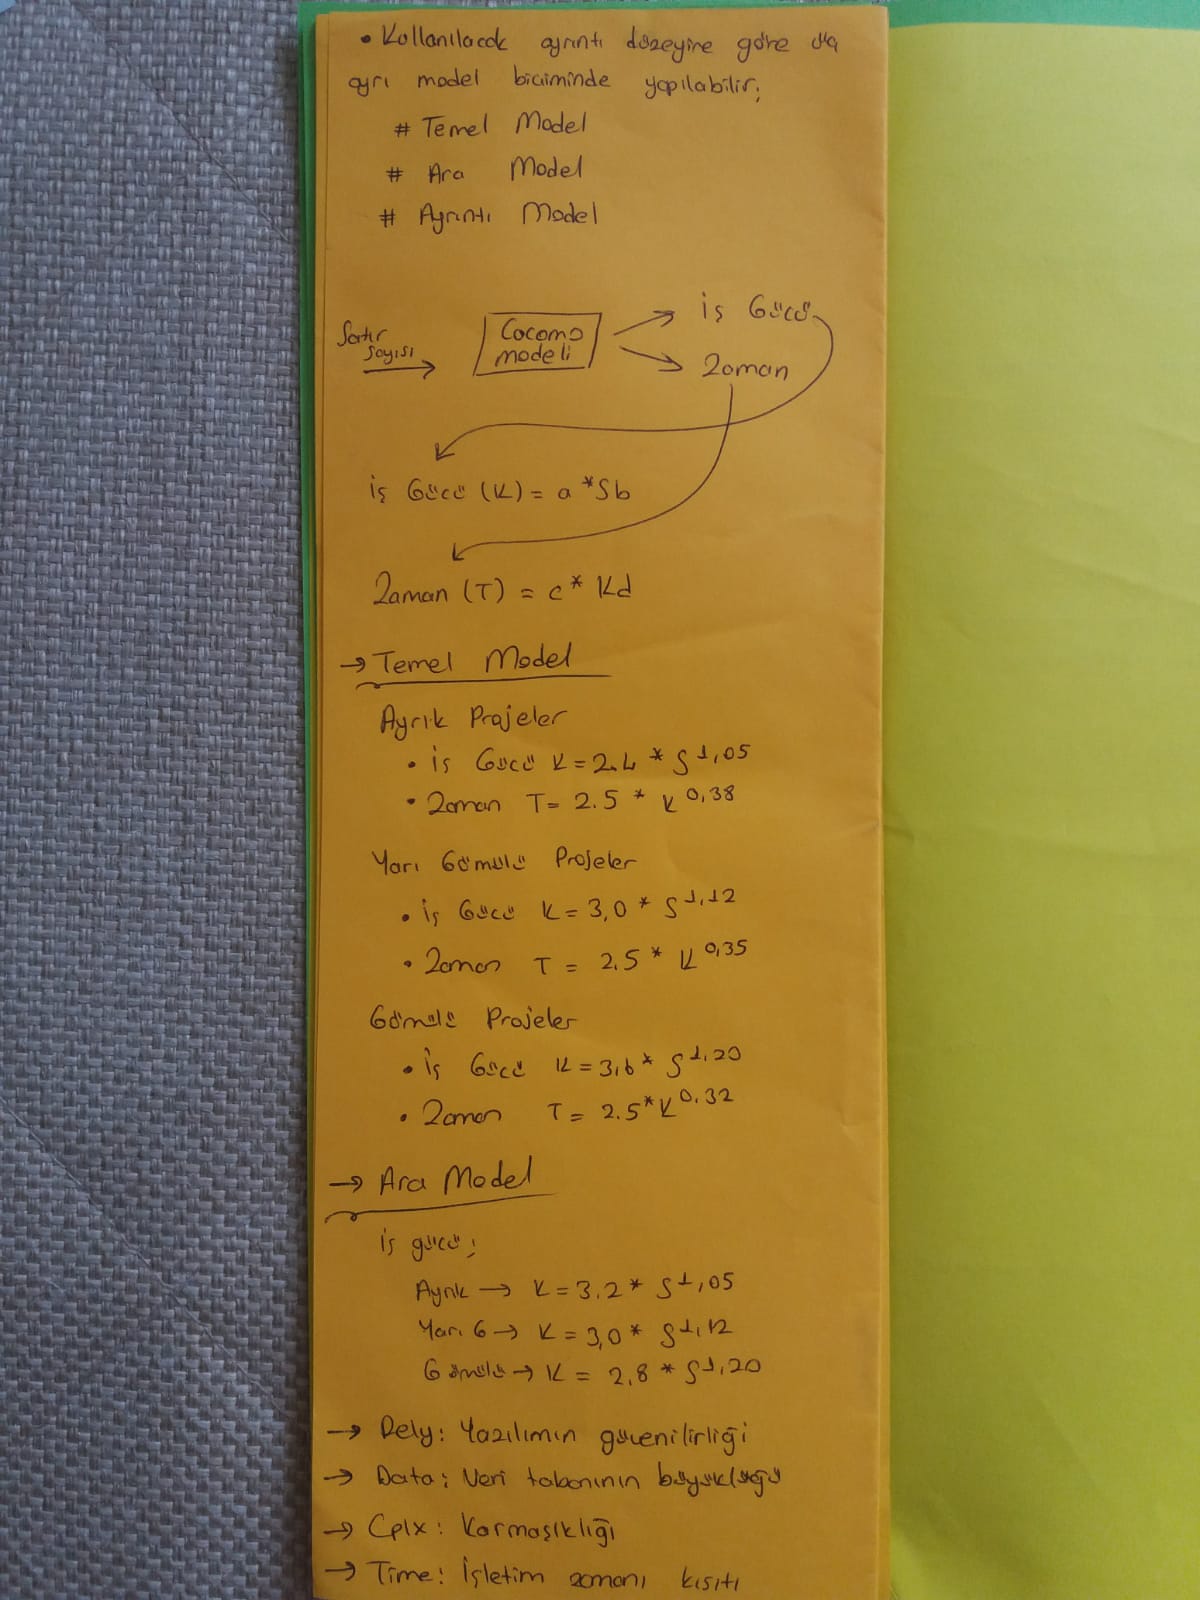 • Kullanılacak ayrıntı düzeyine göre üç
ayrı model biçiminde yapılabilir;
# Temel Model
# Ara Model
# Ayrıntı Model
Satır
sayısı
Cocomo
modeli
İş Gücü
Zaman
İş Gücü (K) = a * Sb
Zaman (T) = c * Kd
→ Temel Model
Ayrık Projeler
• İş Gücü K = 2.4 * S 1,05
• Zaman T = 2.5 * K 0,38
Yarı Gömülü Projeler
• İş Gücü K = 3,0 * S 1,12
• Zaman T = 2,5 * K 0,35
Gömülü Projeler
• İş Gücü K = 3,6 * S 1,20
• Zaman T = 2.5 * K 0,32
→ Ara Model
İş gücü;
Ayrık → K = 3.2 * S 1,05
Yarı G → K = 3,0 * S 1,12
Gömülü → K = 2,8 * S 1,20
→ Rely: Yazılımın güvenilirliği
→ Data: Veri tabanının büyüklüğü
→ Cplx: Karmaşıklığı
→ Time: İşletim zamanı kısıtı